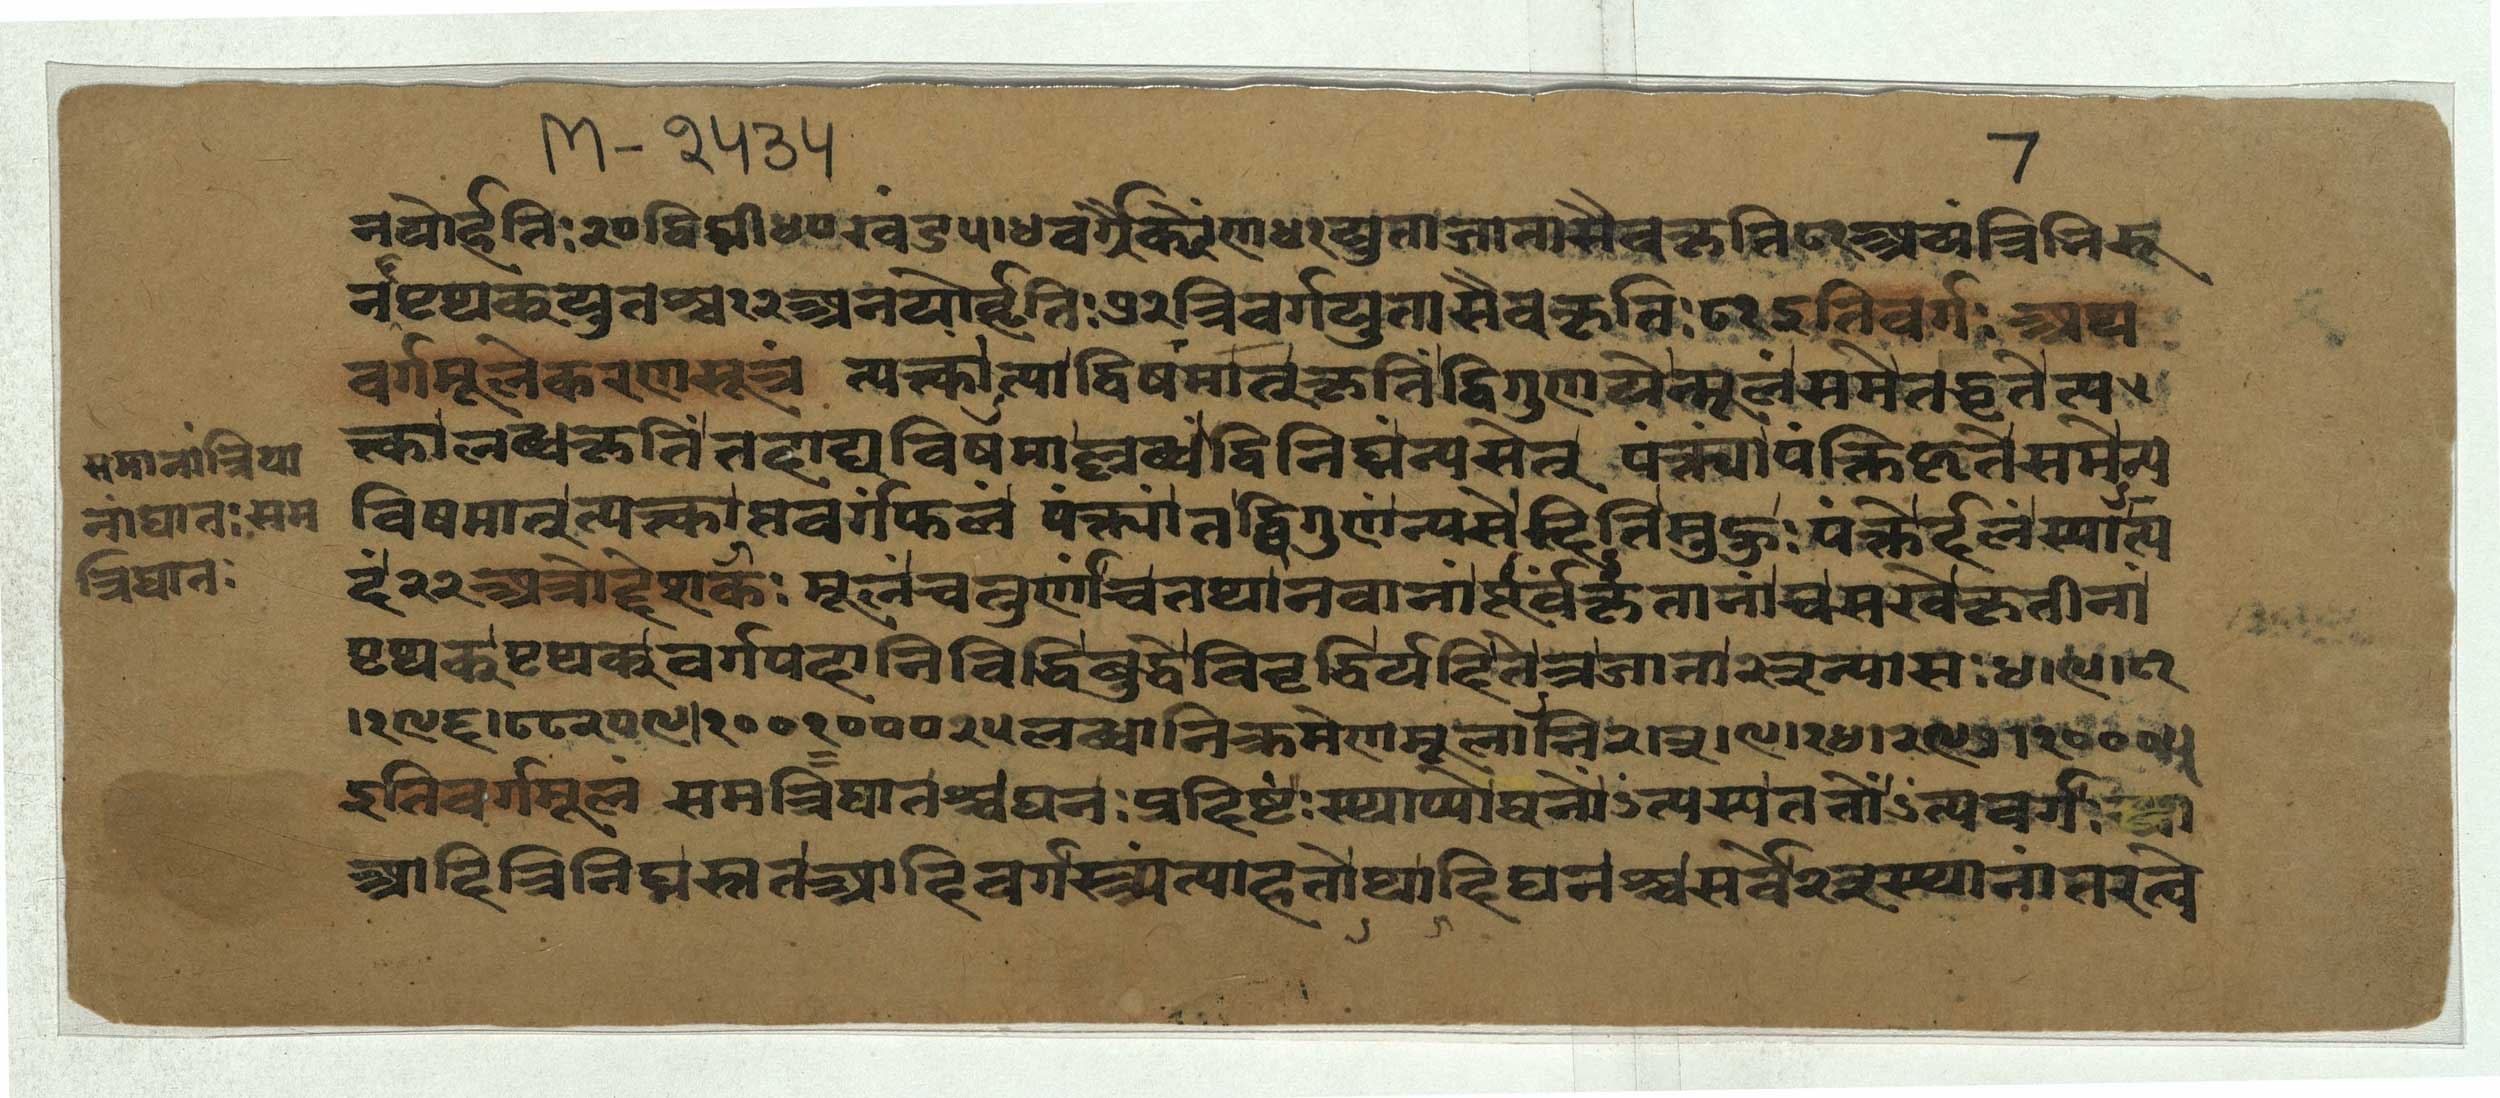 M-२५३५
7
नयोर्हतिः २० द्विघ्नी ४० खंड ५।४ वर्गैक्येन ४१ युता जाता सैव कृति ८१ अथवा त्रिनिरू
नः पृथक्युतश्च १२ अनयोर्हतिः ७२ त्रिवर्गयुता सैव कृतिः ८१ इतिवर्गः अथ
वर्गमूले करणसूत्रं त्यक्त्वांत्याद्विषमात्कृतिं द्विगुणयेन्मूलं समे तद्धृते त्य
समानां त्रिया
क्त्वा लब्धकृतिं तदाद्यविषमाल्लब्धं द्विनिघ्नं न्यसेत् पंक्त्यां पंक्तिहृते समेन्य
नां घातः सम
विषमात् त्यक्त्वाप्तवर्गं फलं पंक्त्यां तद्द्विगुणं न्यसेदिति मुहुः पंक्तेर्दलं स्यात्प
त्रिघातः
दं २२ अत्रोद्देशकः मूलं चतुर्णां च तथा नवानां पूर्वं कृतानां च सखे कृतीनां
पृथक् पृथक् वर्गपदानि विद्धि बुद्धेर्विवृद्धिर्यदि तेत्र जाता २३ न्यासः ४।९।८१
।१९६।८८२०९।१००१०००२५ लब्धानि क्रमेण मूलानि २।३।९।१४।२९७।१०००५
इतिवर्गमूलं समत्रिघातश्च घनः प्रदिष्टः स्थाप्यो घनोऽंत्यस्य ततोऽंत्यवर्गः
आदित्रिनिघ्नस्तत आदिवर्गस्त्र्यंत्याहतोथादिघनश्च सर्वे २३ स्थानांतरत्वे